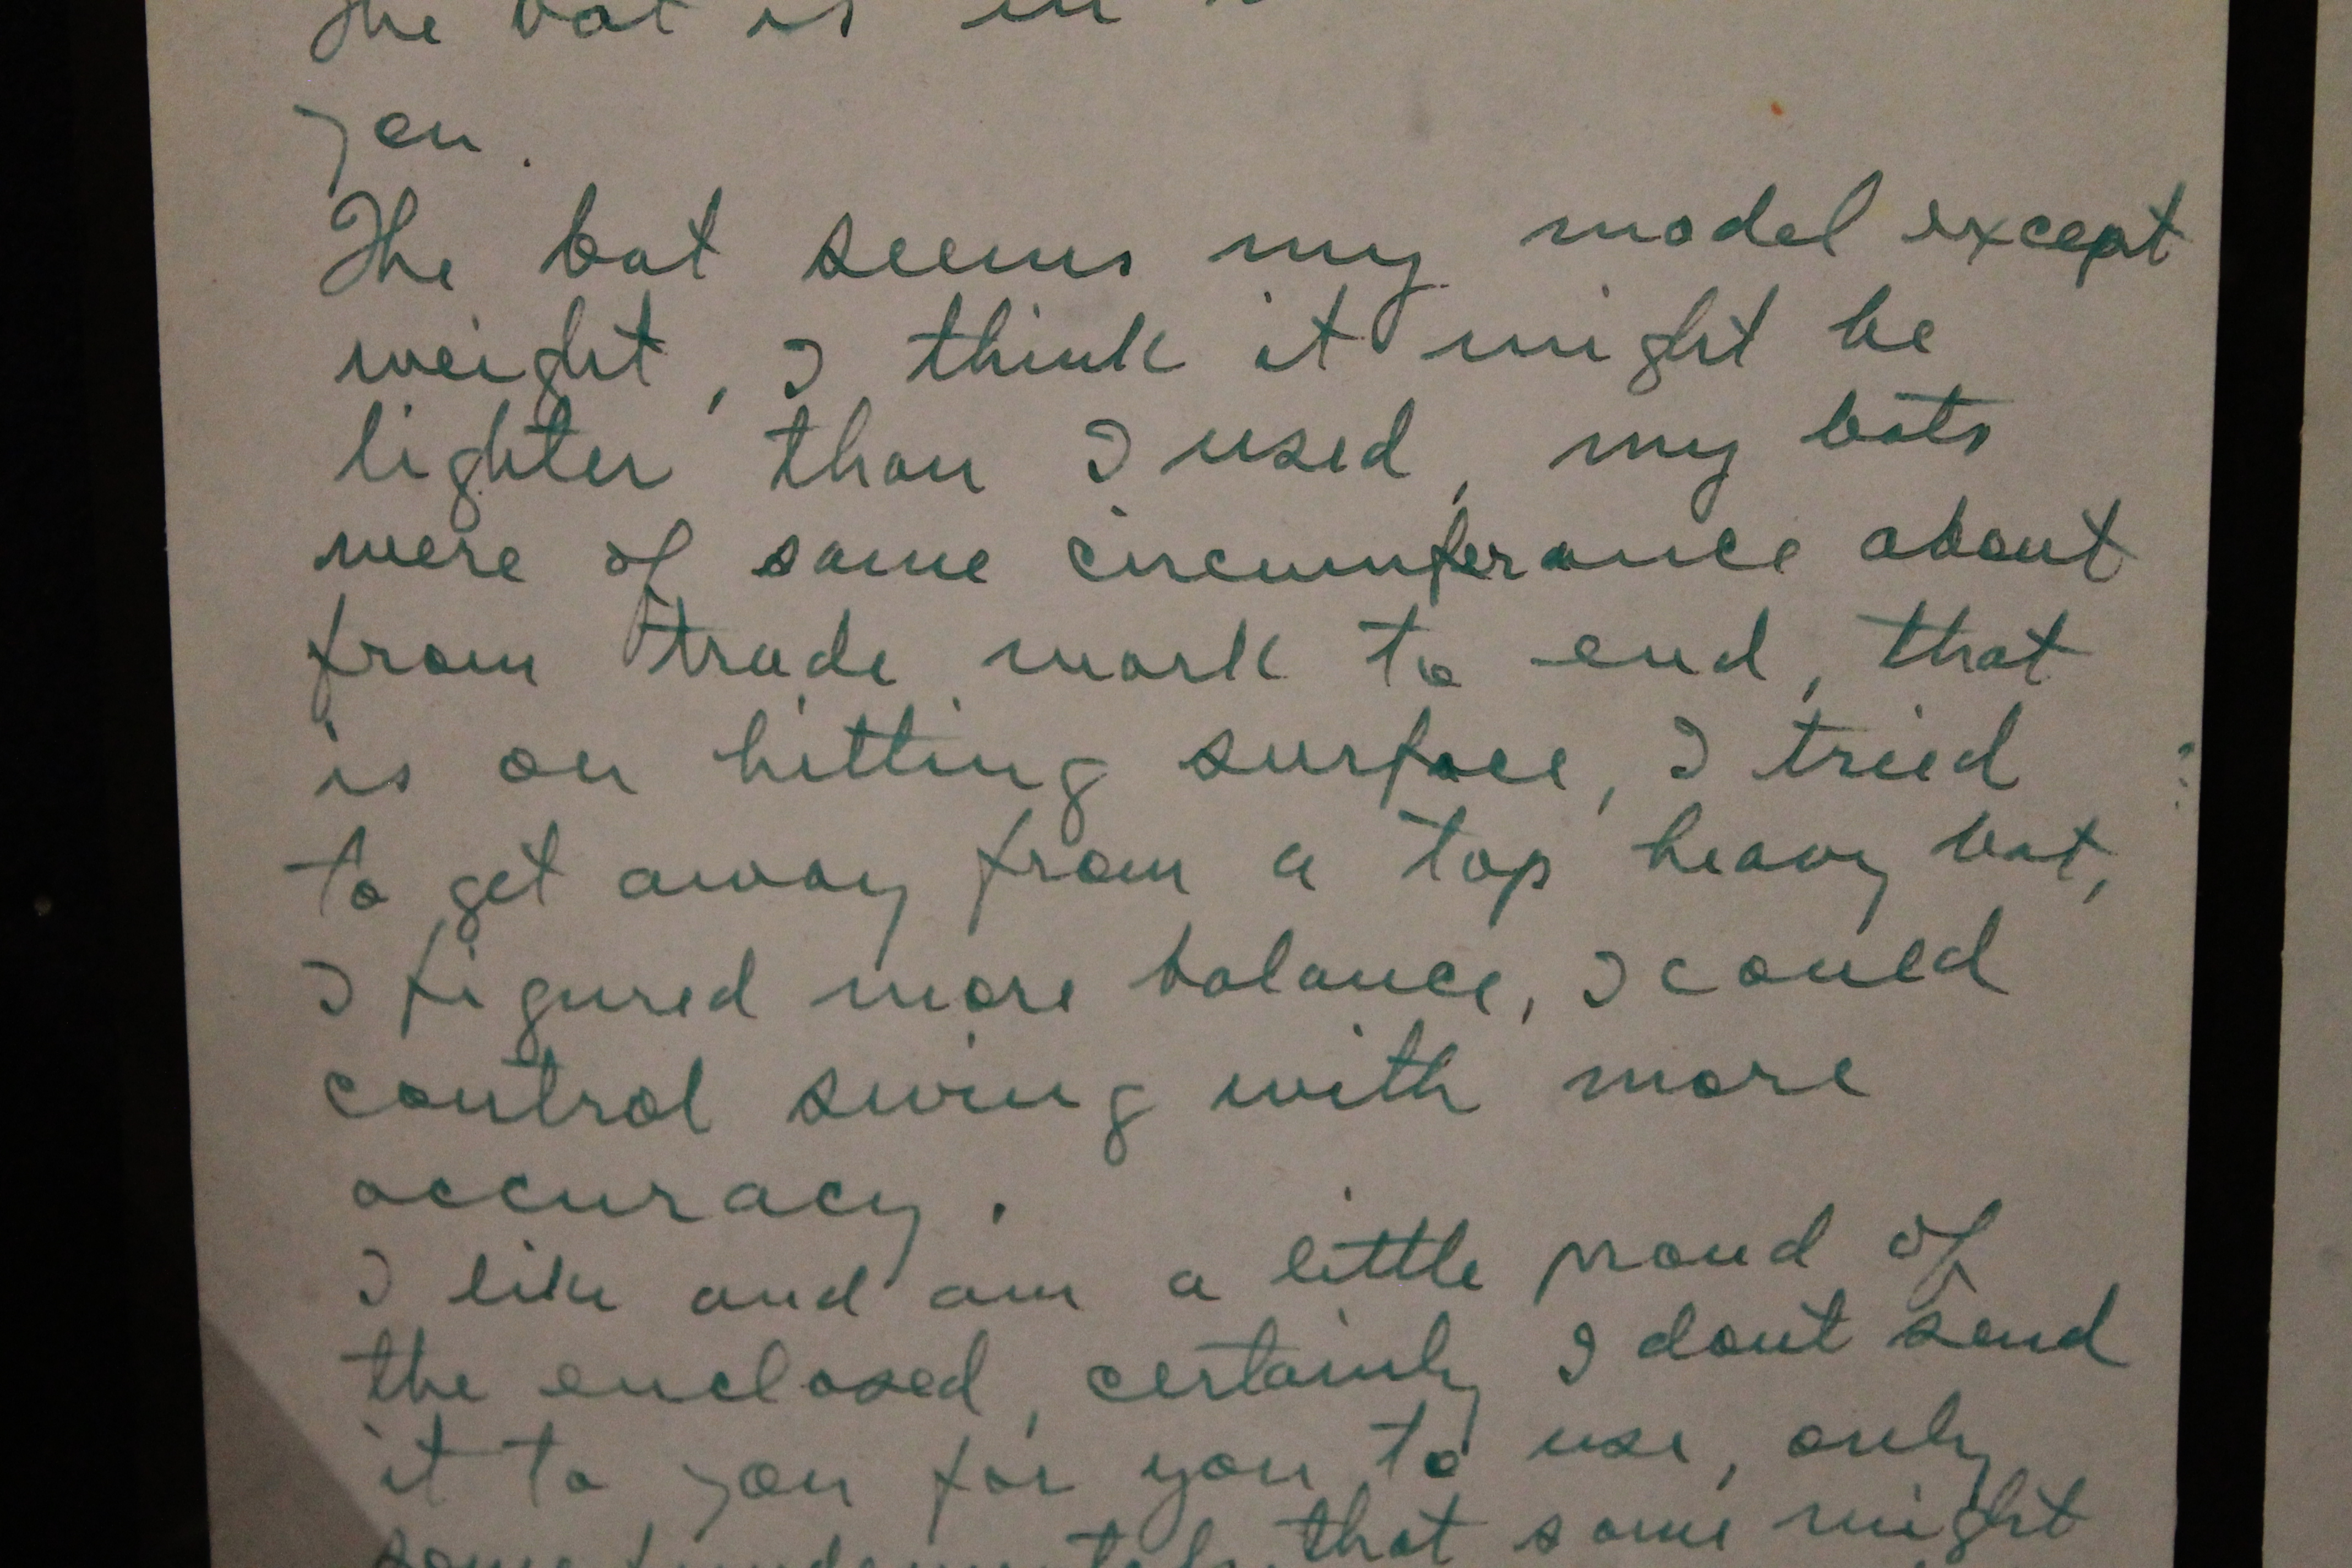 The bat is in
you.
The bat seems my model except
weight, I think it might be
lighter than I used, my bats
were of same circumferance about
from trade mark to end, that
is on hitting surface, I tried
to get away from a top heavy bat,
I figured more balance, I could
control swing with more
accuracy.
I like and am a little proud of
the enclosed, certainly I dont send
it to you for you to use, only
some fundamentals that some might